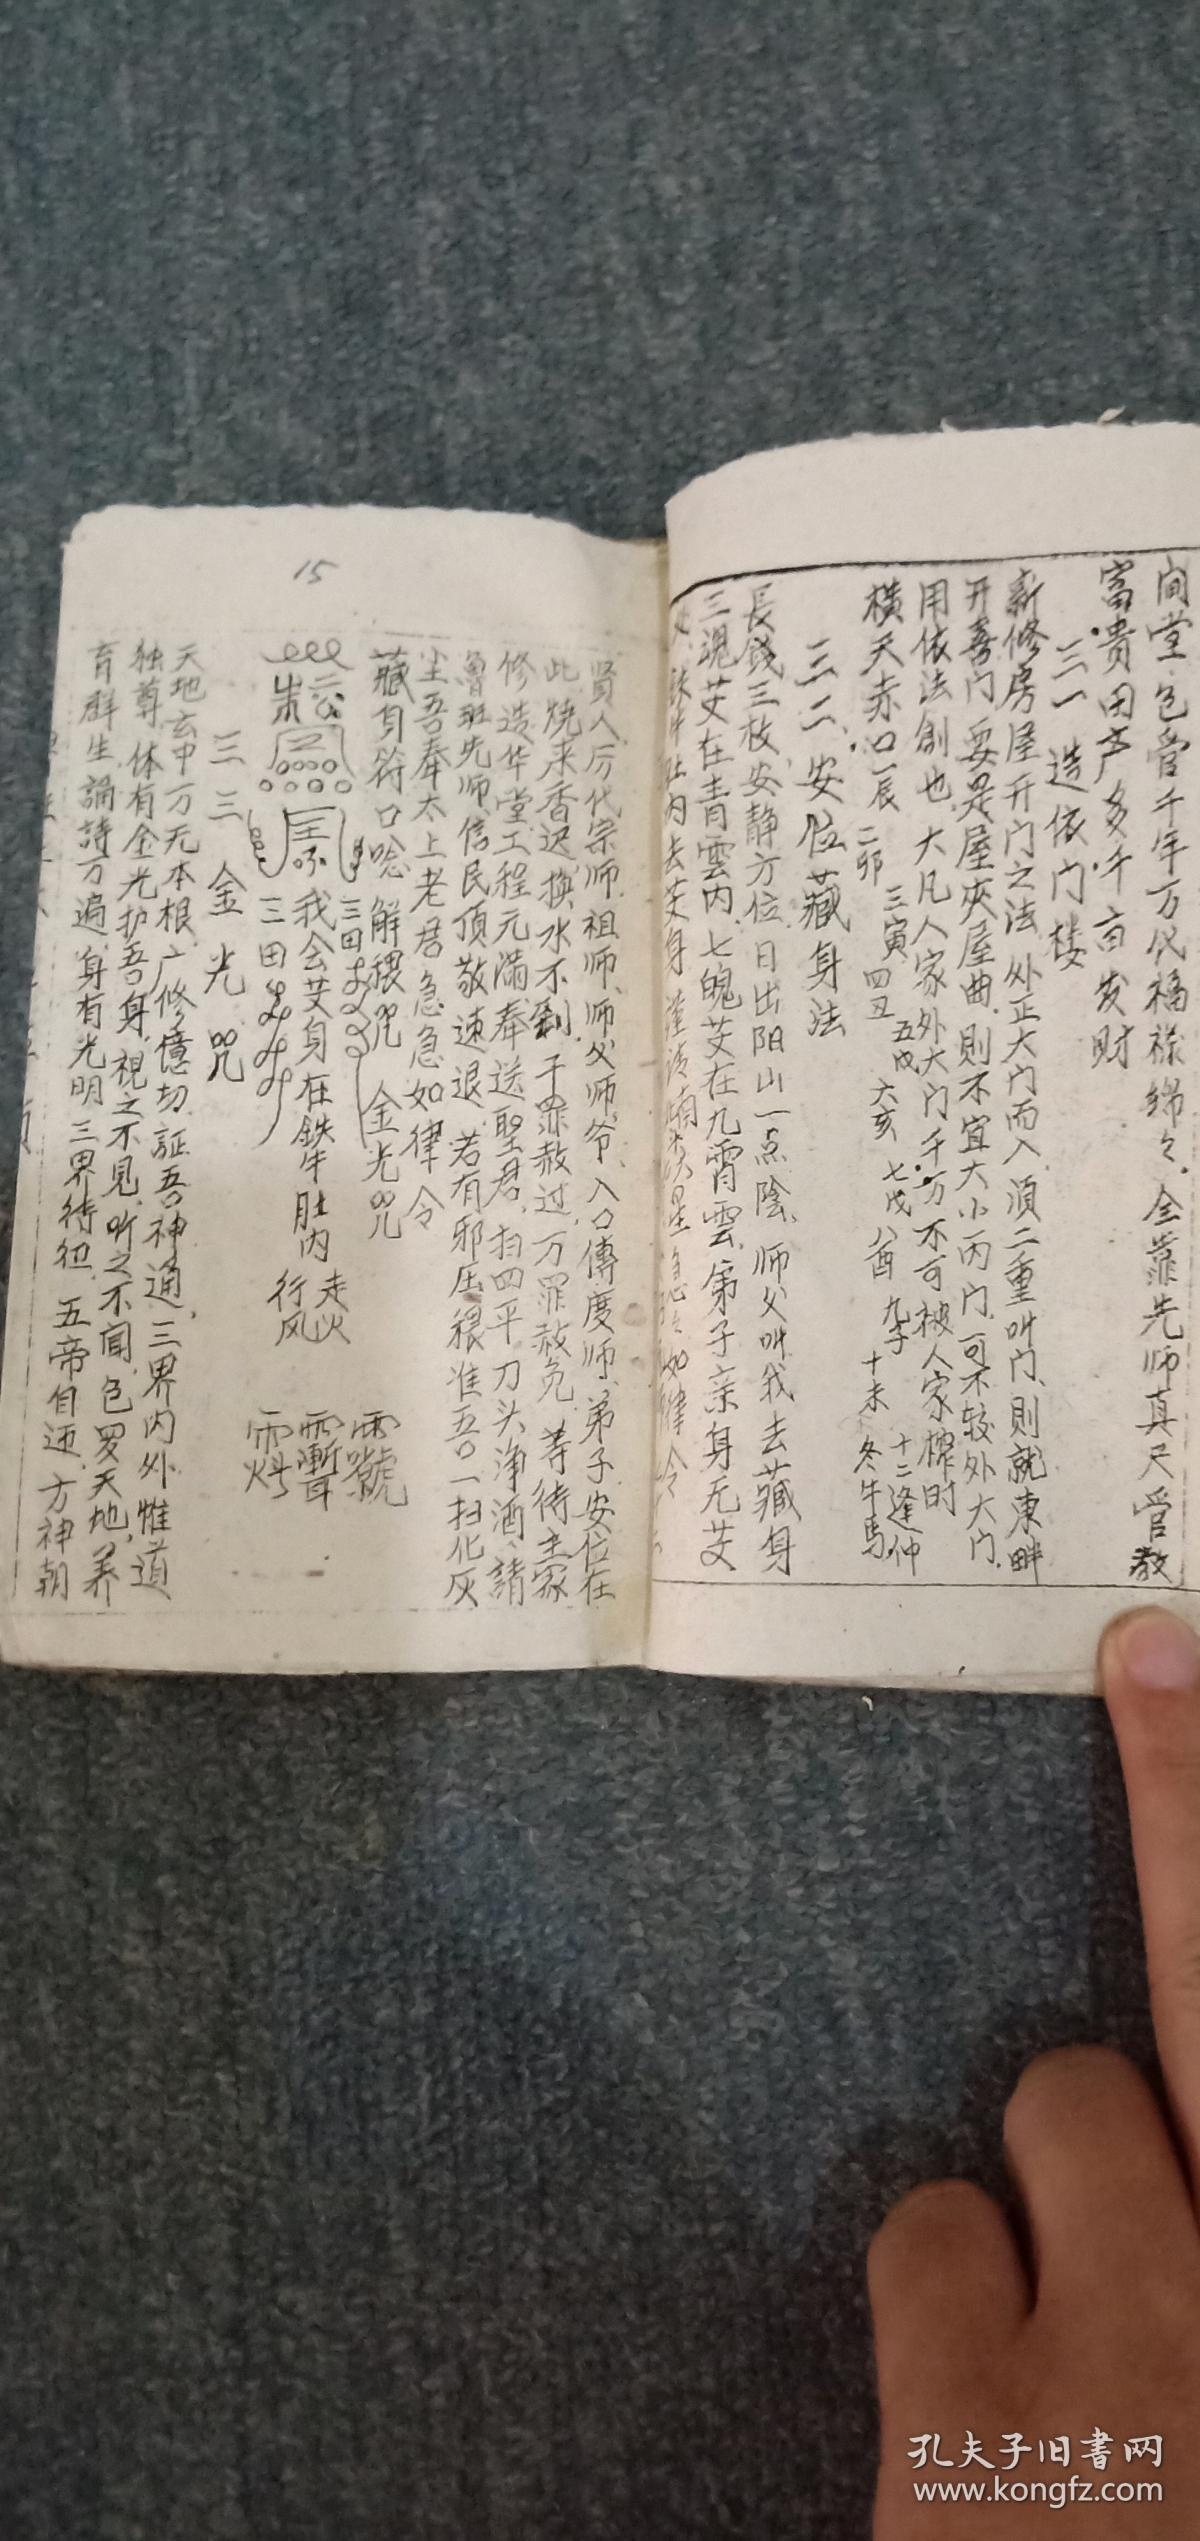 间堂包管千年万代福禄绵々.全靠先师真尺管教
富贵田产多千亩发财
三一造依门楼
新修房屋开门之法外正大门而入須二重叫门則就東畔
开善门要是屋夾屋曲則不宜大小丙门可不较外大门.
用依法創也大凡人家外大门千万不可被人家
横天赤口辰二卯三寅四丑五戌六亥七戌八酉九子十未冬牛馬十二逢仲
三二、安位藏身法
長錢三枚安静方位日出阳山一点陰、师父叫我去藏身
三魂艾在青雲内七魄艾在九霄雲弟子亲身无艾
肚内去艾身如律令
15
賢人厉代宗师祖师师父师爷、入口傳度师、弟子安位在
此燒来香迟換水不到千罪赦过万罪赦免等待主家
修造华堂工程元满奉送聖君扫四平刀头净酒請
魯班先师信民頂敬速退若有邪压稂准吾一扫化灰
尘吾奉太上老君急急如律令
藏身符口唸解稂咒金光咒
我会艾身在鉄牛肚内
三田
三田
走火
行风
三三金光咒
天地玄中万无本根广修億劫証吾神通三界内外惟道
独尊体有金光护吾身視之不見听之不闻包罗天地养
育群生誦詩万遍身有光明三界待衛五帝自迎方神朝
孔夫子旧書网
www.kongfz.com